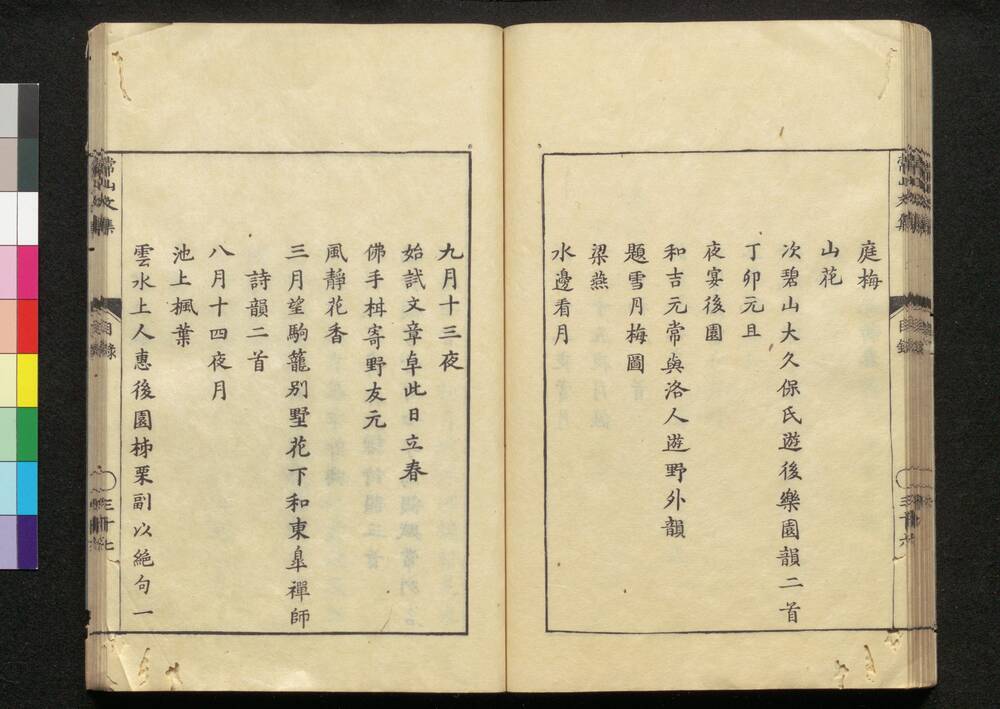 庭梅
山花
次碧山大久保氏遊後樂園韻二首
丁卯元旦
夜宴後園
和吉元常與洛人遊野外韻
題雪月梅圖
梁燕
水邊看月
九月十三夜
始試文章草此日立春
佛手柑寄野友元
風靜花香
三月望駒籠別墅花下和東皐禪師
詩韻二首
八月十四夜月
池上楓葉
雲水上人惠後園柹栗副以絕句一
常山文集
目錄
三十七